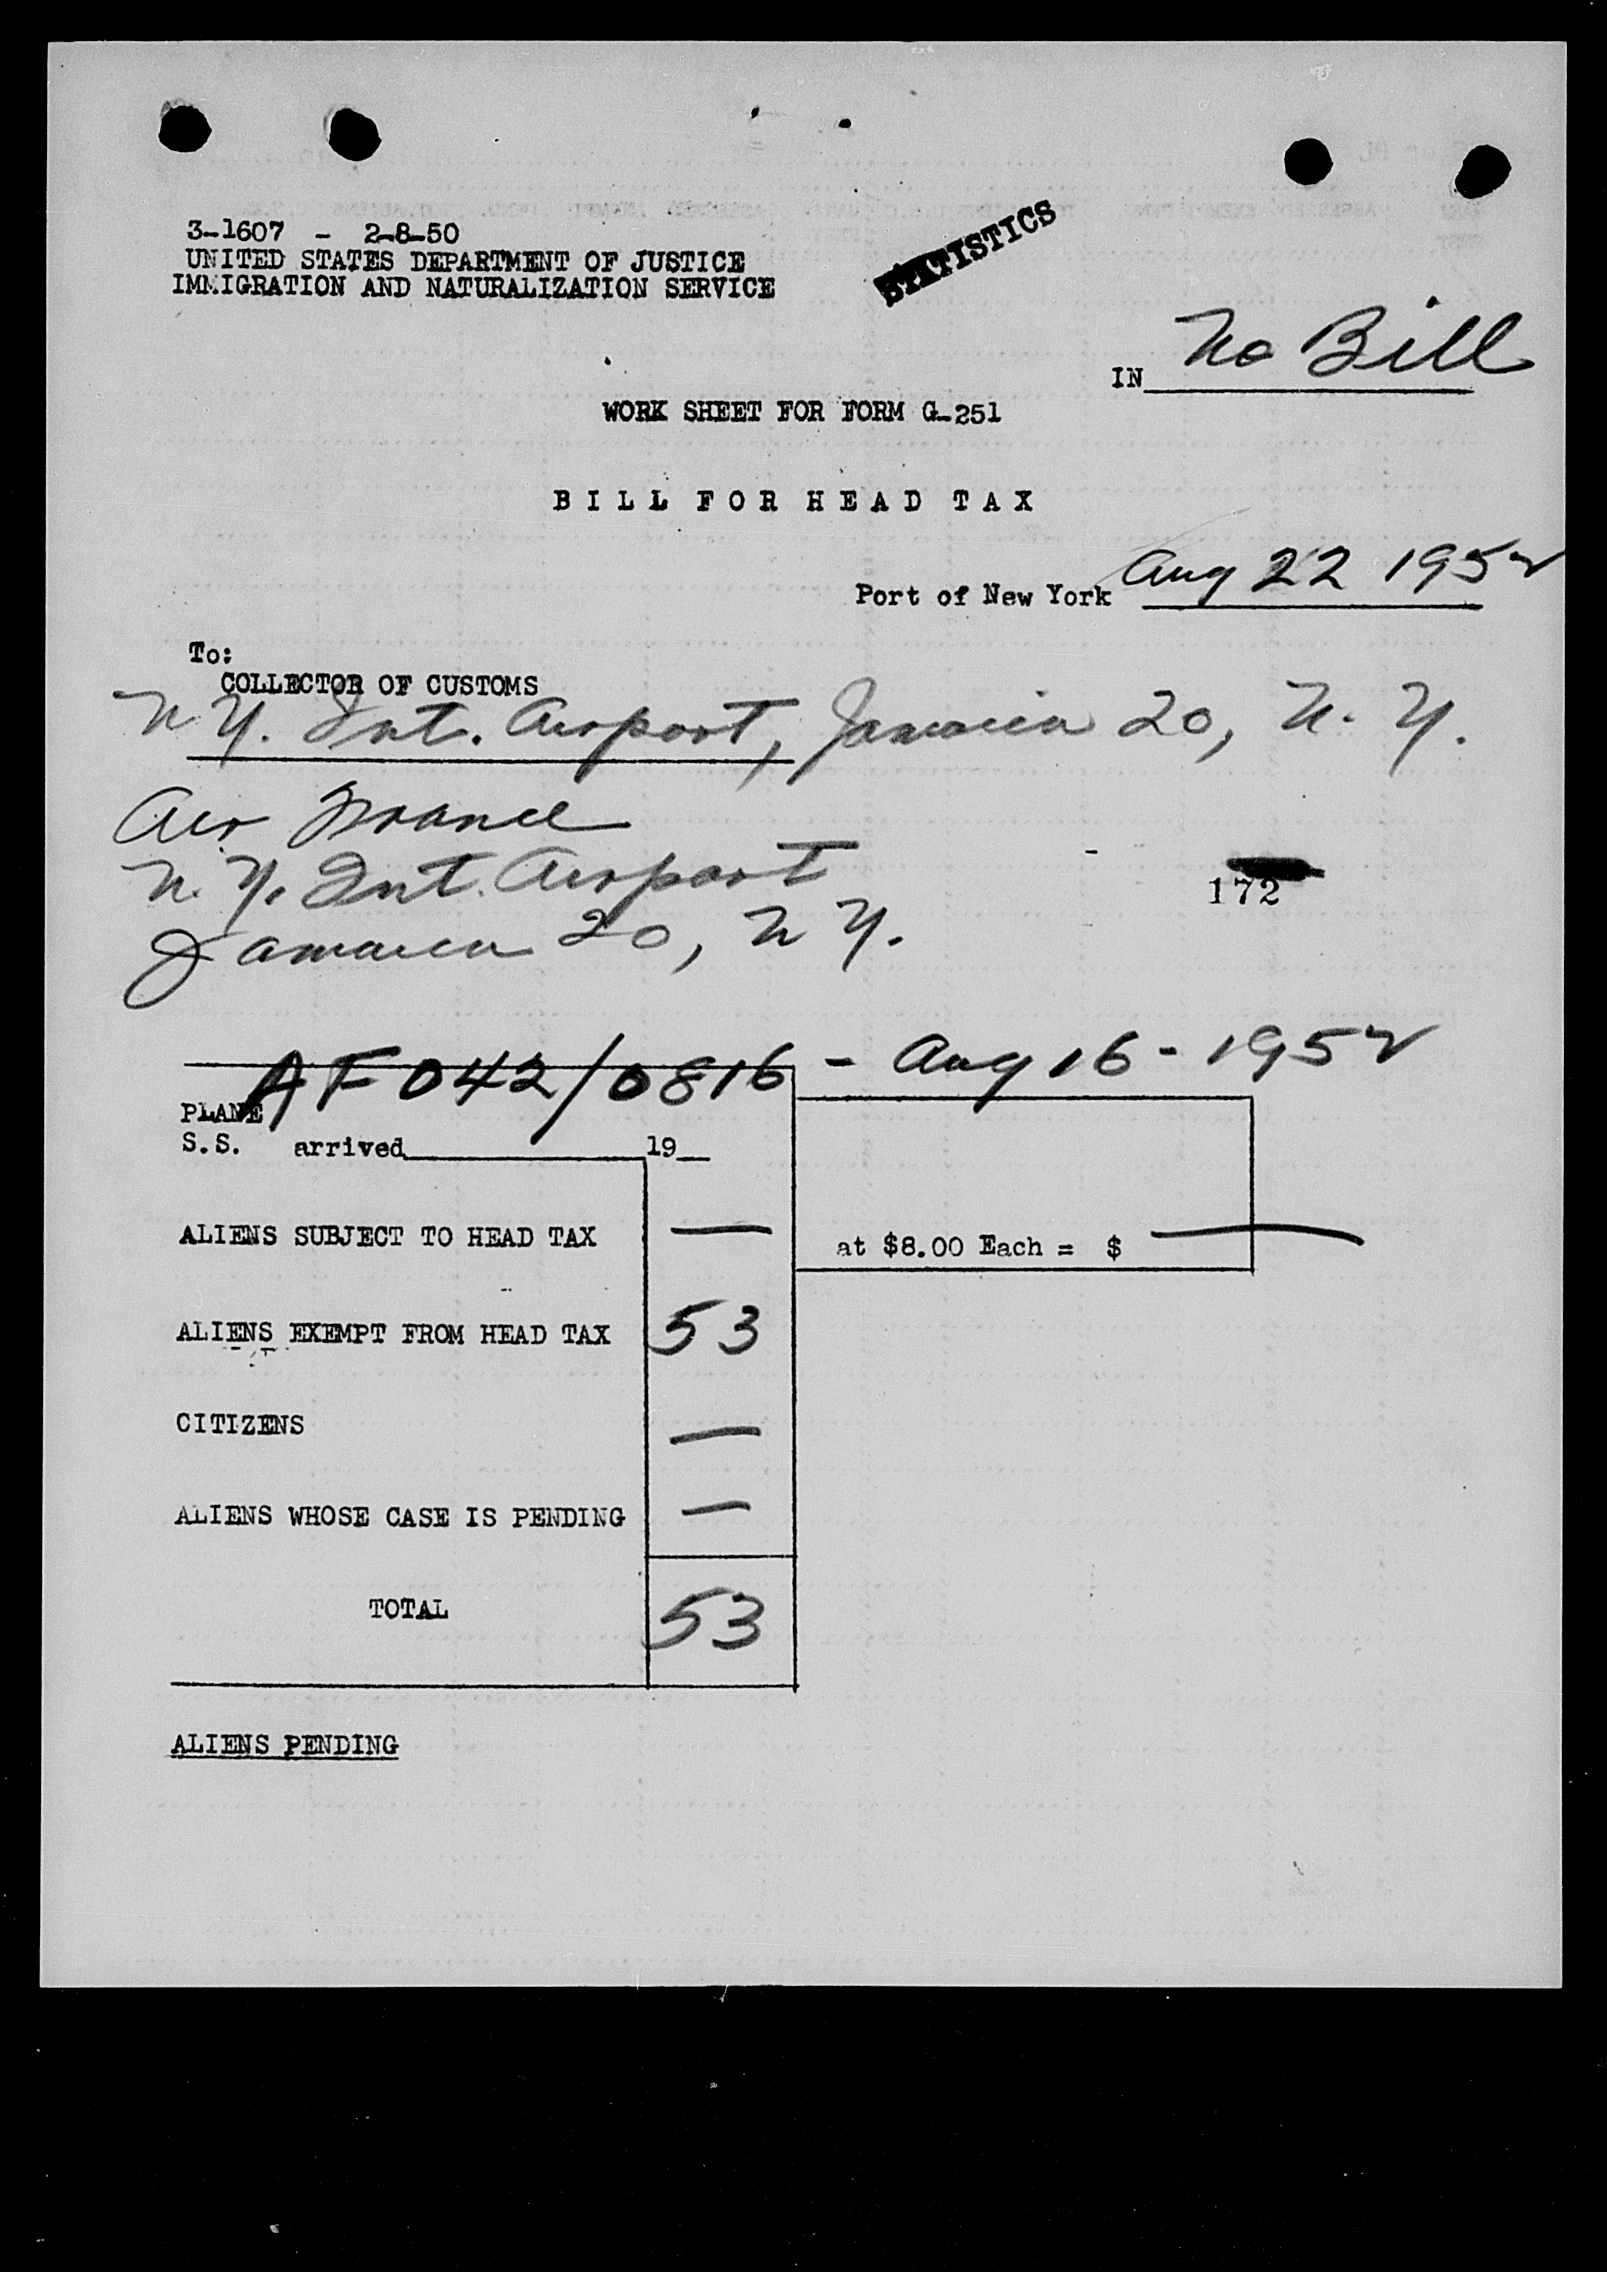 3-1607 - 2-8-50
UNITED STATES DEPARTMENT OF JUSTICE
IMMIGRATION AND NATURALIZATION SERVICE
STATISTICS
IN No Bill
WORK SHEET FOR FORM G-251
BILL FOR HEAD TAX
Port of New York Aug 22 1952
To:
COLLECTOR OF CUSTOMS
N.Y. Int. Airport, Jamaica 20, N.Y.
Air France
N.Y. Int. Airport
172
Jamaica 20, N.Y.
AF 042/0816 - Aug 16 - 1952
PLANE
S.S. arrived 19
ALIENS SUBJECT TO HEAD TAX — at $8.00 Each = $ —
ALIENS EXEMPT FROM HEAD TAX 53
CITIZENS —
ALIENS WHOSE CASE IS PENDING —
TOTAL 53
ALIENS PENDING